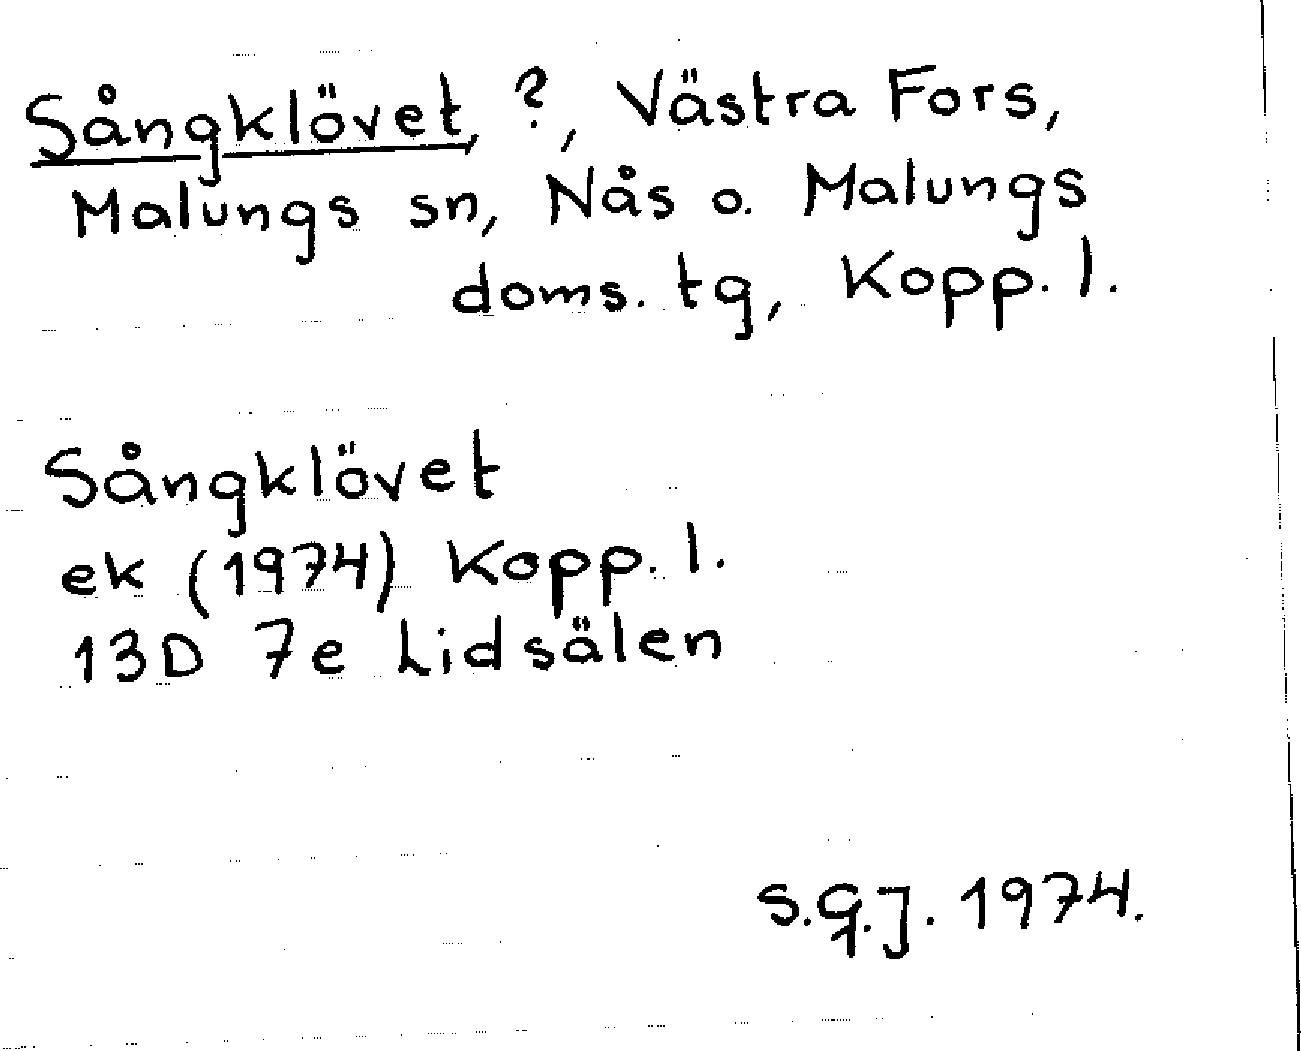 Sångklövet, ?, Västra Fors,
Malungs sn, Nås o. Malungs
doms. tg, Kopp. l.
Sångklövet
ek (1974) Kopp. l.
13D 7e Lidsälen
S.G.J. 1974.